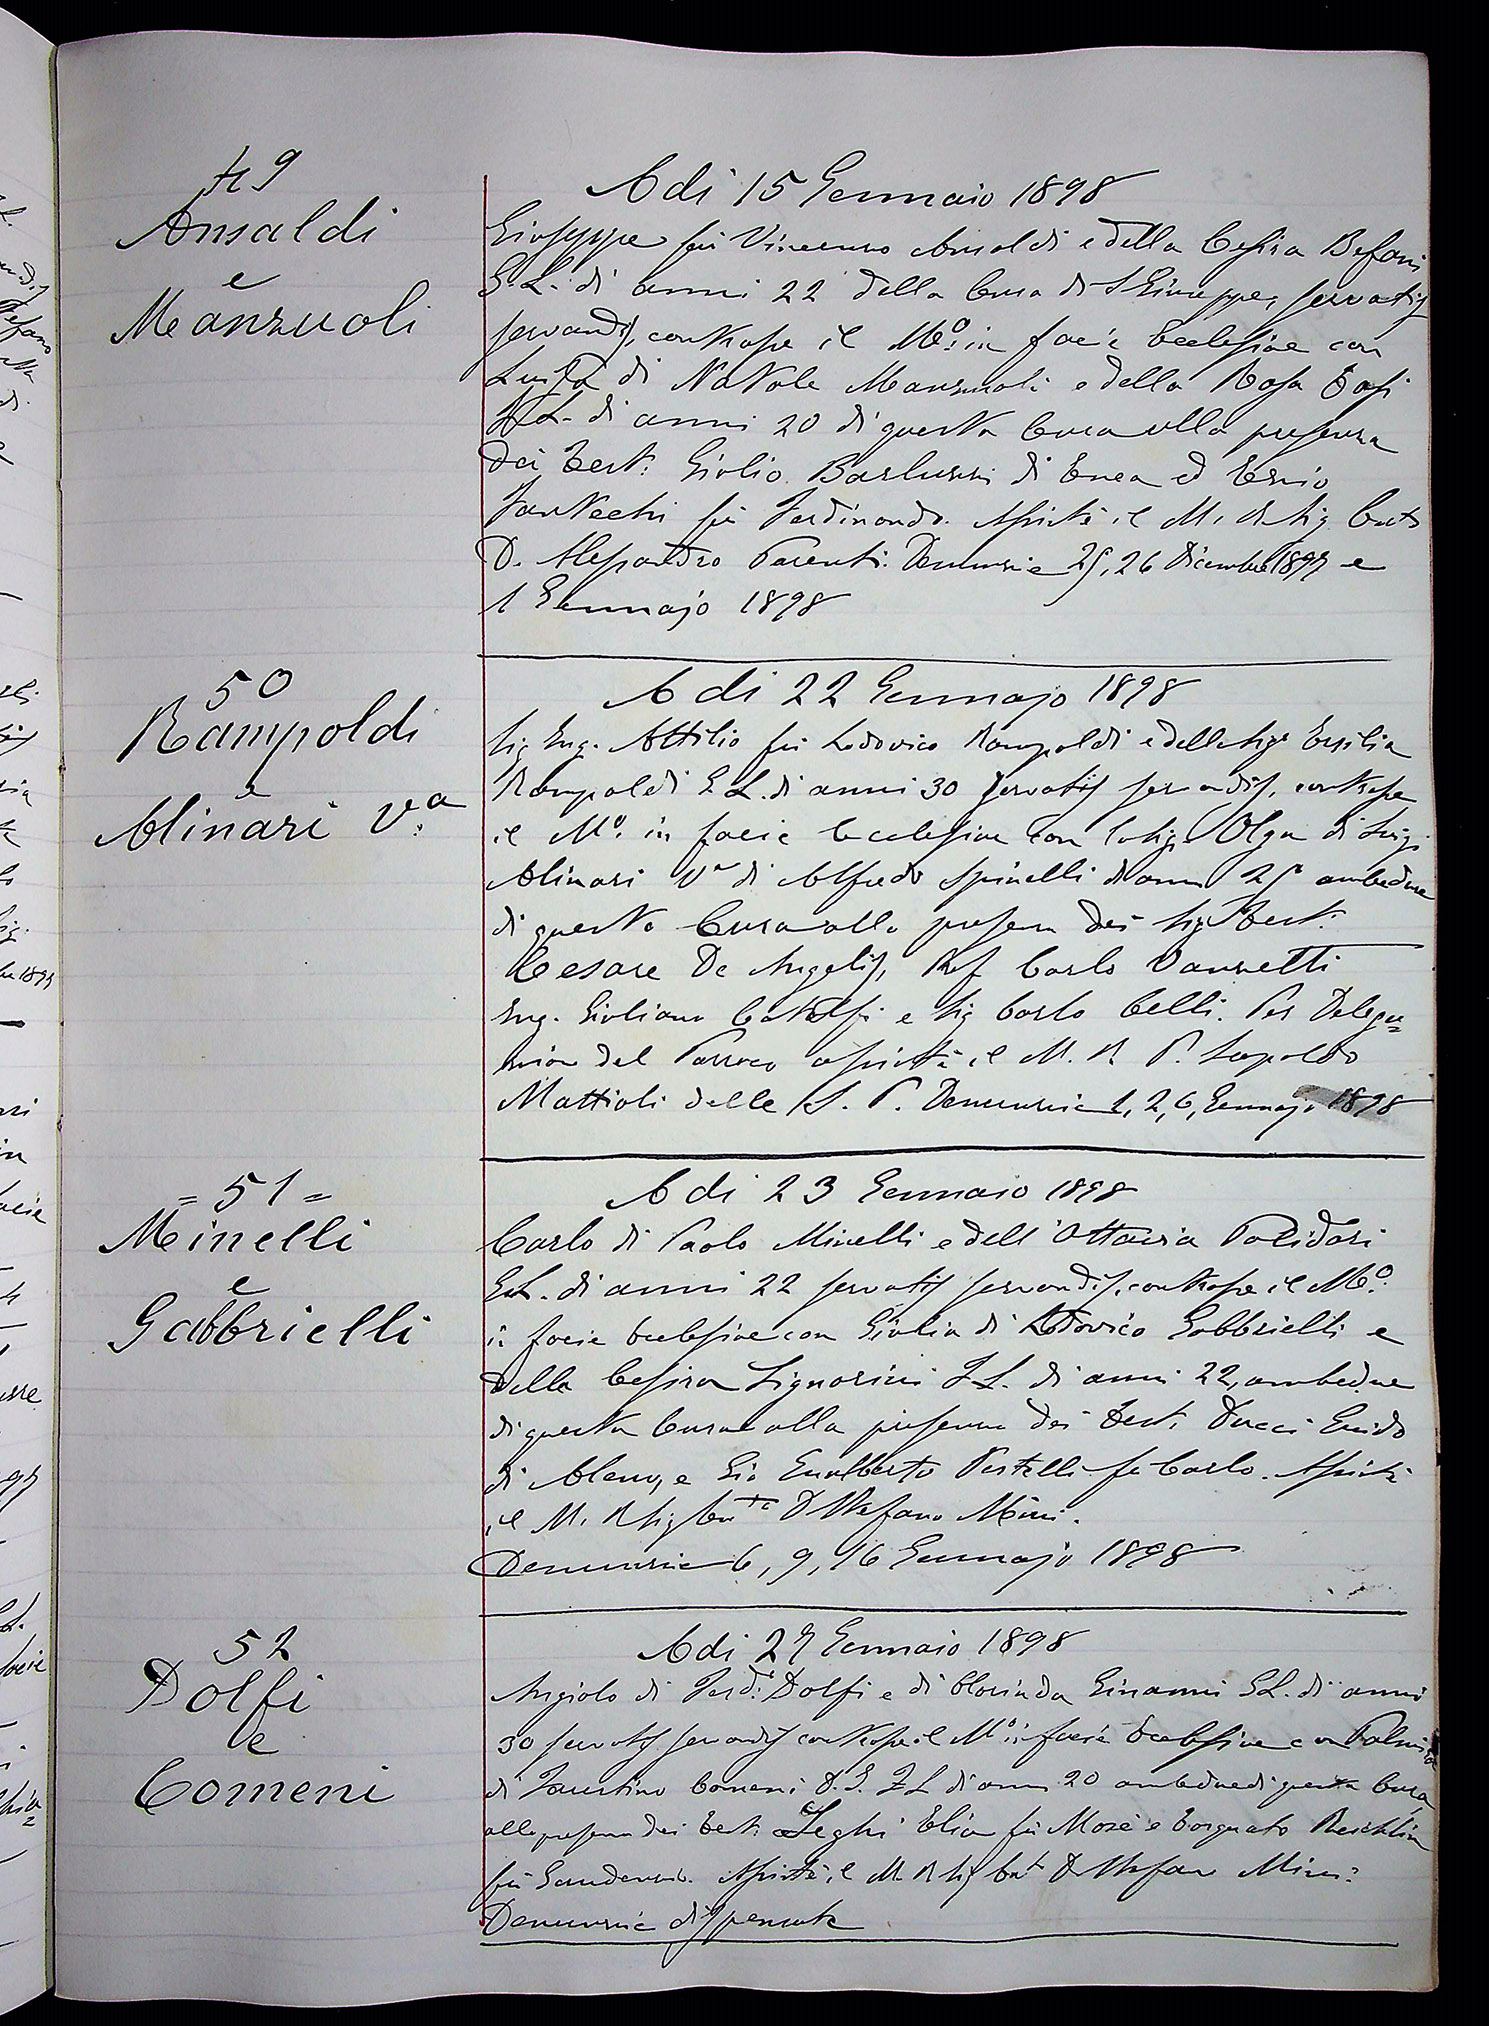 49
Ansaldi
e
Manzuoli
Adi 15 Gennaio 1898
Giuseppe fu Vincenzo Ansaldi e della Cesira Befani
G.L. di anni 22 della Cura di S Giuseppe, servatis
servandis, contrasse il Mo: in facie Ecclesiae con
Luisa di Natale Manzuoli e della Rosa
F.L. di anni 20 di questa Cura alla presenza
dei Test: Giulio Barluzzi di Enea ed Ezio
fu Ferdinando. Assistè il M. R. Sig. Curto
D. Alessandro Parenti. Denunzie 25, 26 Dicembre 1897 e
1 Gennajo 1898
50
Rampoldi
e
Alinari Va
Adi 22 Gennajo 1898
Sig Ing. Attilio fu Lodovico Rampoldi e della Siga Ersilia
Rampoldi G L. di anni 30 servatis servandis, contrasse
il Mo: in facie Ecclesiae con la Siga Olga di Luigi
Alinari Va di Alfredo Spinelli di anni 25 ambedue
di questa Cura alla presenza dei Sigi Test:
Cesare De Angelis, Prof Carlo Vanzetti
Ing. Giuliano e Sig Carlo Celli. Per Delega=
zione del Parroco assistè il M. R. P. Leopoldo
Mattioli delle S. P. Denunzie 1, 2, 6, Gennajo 1898
= 51 =
Minelli
e
Gabbrielli
Adi 23 Gennaio 1898
Carlo di Paolo Minelli e dell'Ottavia Polidori
G.L. di anni 22 servatis servandis, contrasse il Mo:
in facie Ecclesiae con Giulia di Lodovico Gabbrielli e
della Cesira Signorini F.L. di anni 22, ambedue
di questa Cura alla presenza dei Test: Ducci Guido
di e Gio Gualberto Pestelli fu Carlo. Assistè
il M. R Sig Cuto D Stefano Mini.
Denunzie 6, 9, 16 Gennajo 1898
52
Dolfi
e
Comeni
Adi 27 Gennaio 1898
Angiolo di Ferdo: Dolfi e di Clorinda Ginanni G.L. di anni
30 servatis servandis contrasse il Mo: in facie Ecclesiae con Palmira
di Faustino Comeni D. S. F L di anni 20 ambedue di questa Cura
alla presenza dei Test: Seghi Elia fu Mosè e Torquato
fu Gaudenzio. Assistè il M R Sig Cuto D Stefano Mini:
Denunzie dispensate